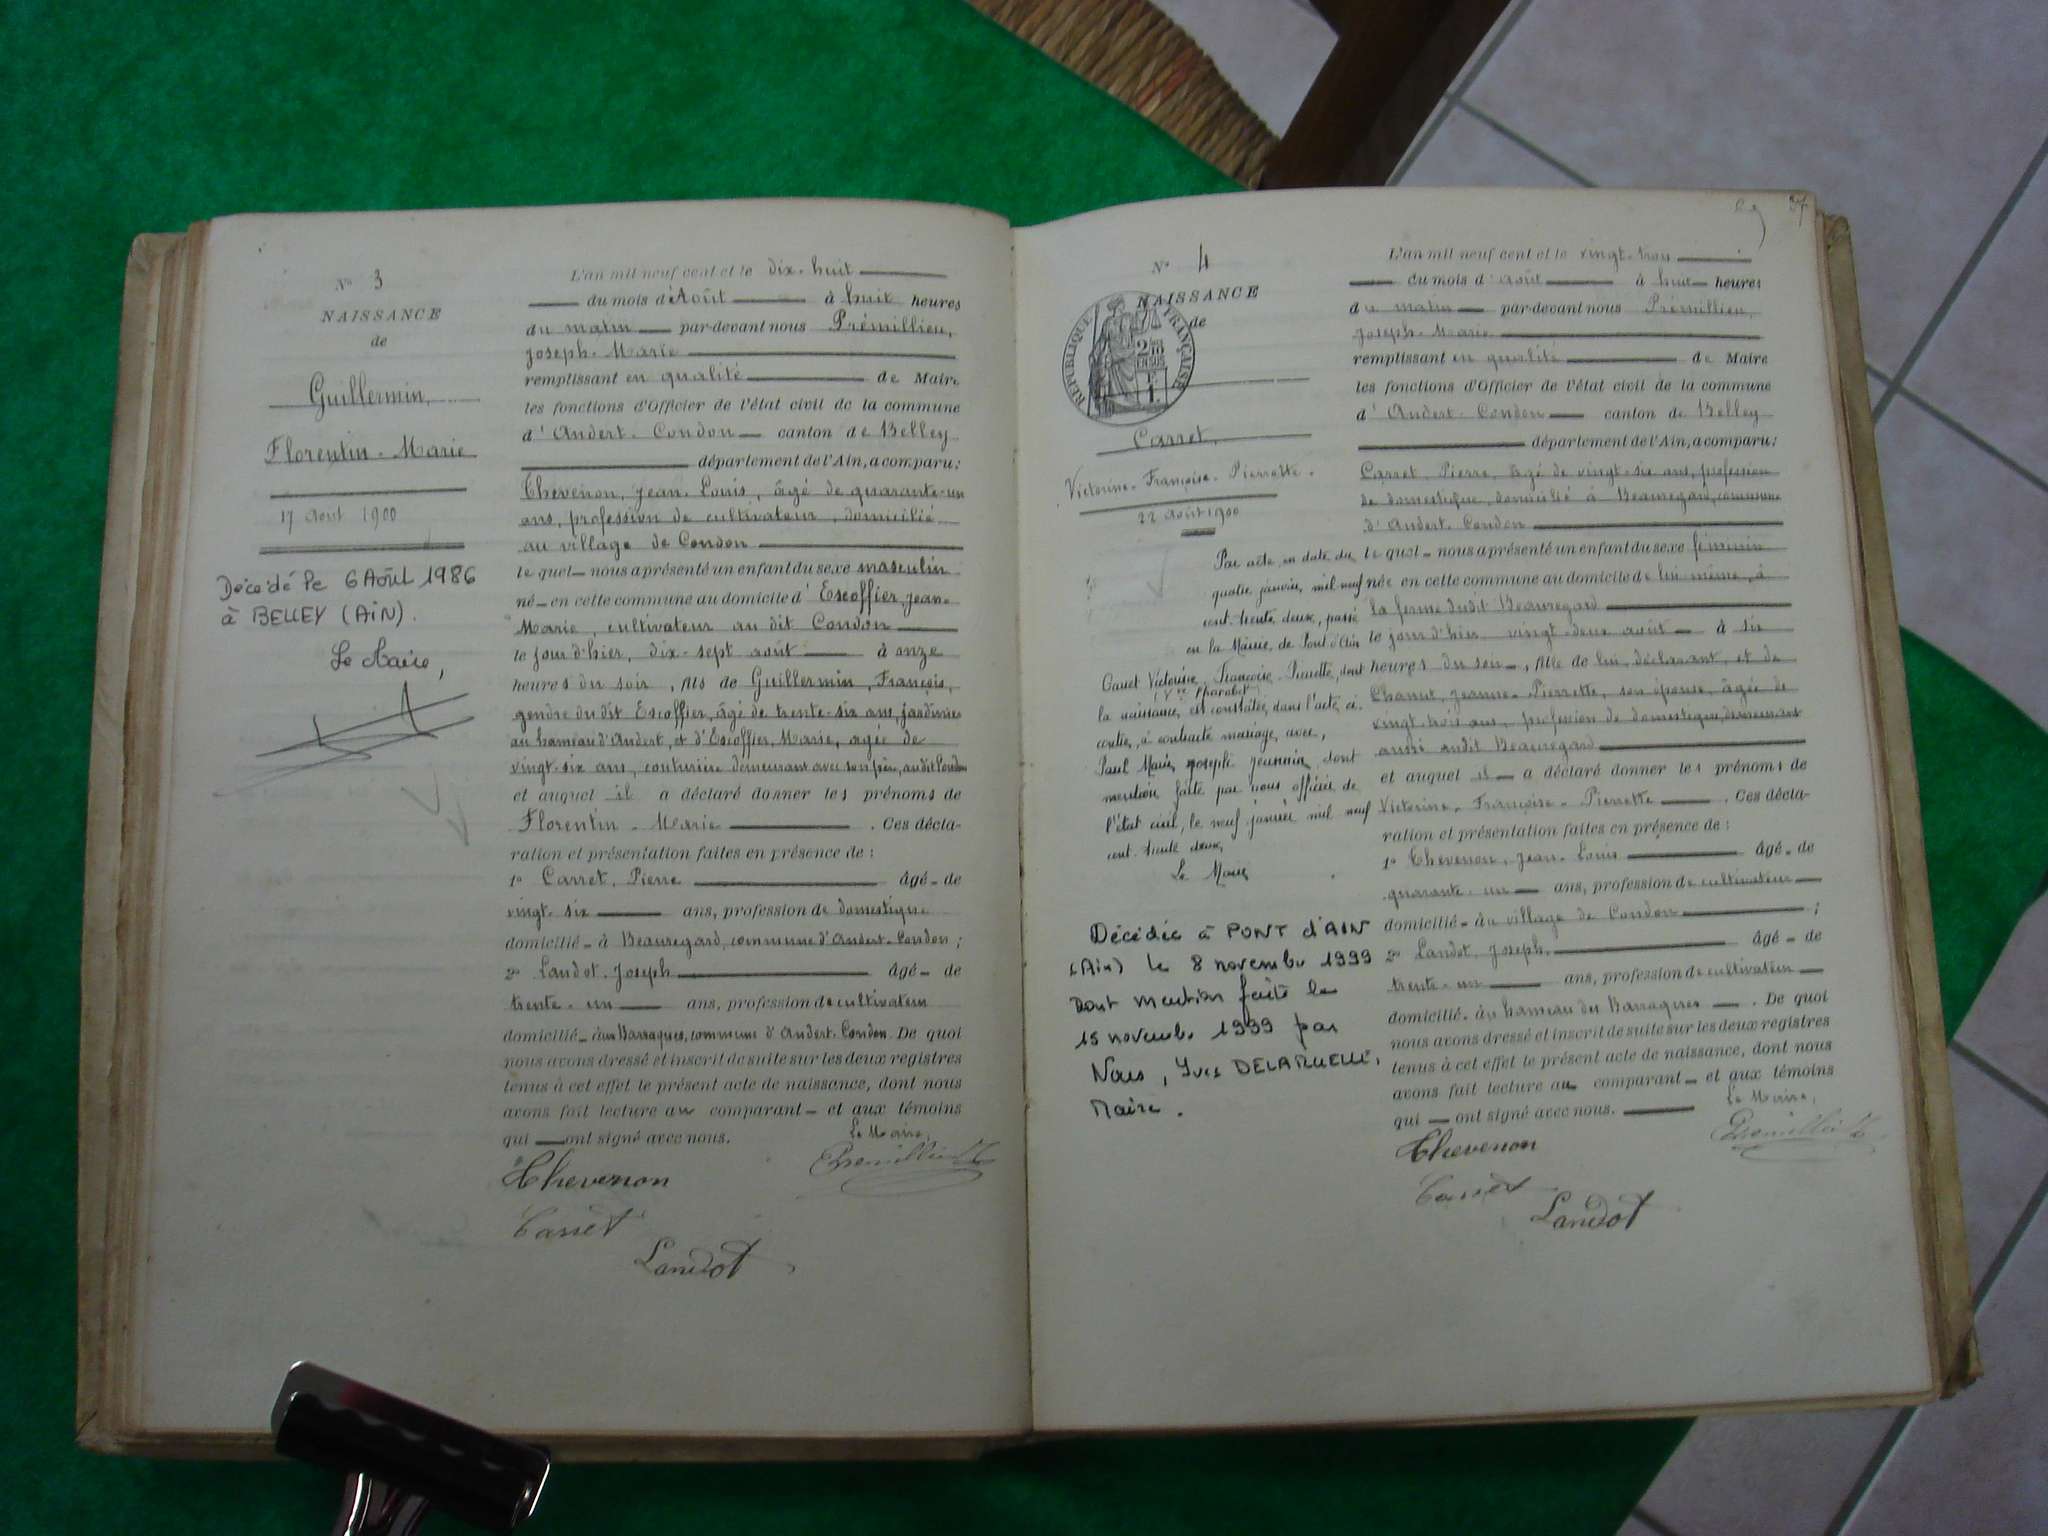 N° 3
NAISSANCE
de
Guillermin,
Florentin - Marie
17 août 1900
Décédé le 6 Août 1986
à BELLEY (AiN).
Le Maire,
L'an mil neuf cent et le dix-huit
du mois d'Août à huit heures
du matin par-devant nous Prémillieu,
Joseph-Marie
remplissant en qualité de Maire
les fonctions d'Officier de l'état civil de la commune
d'Andert-Condon canton de Belley
département de l'Ain, a comparu:
Thevenon, Jean-Louis, âgé de quarante-un
ans, profession de cultivateur, domicilié
au village de Condon
lequel nous a présenté un enfant du sexe masculin
né en cette commune au domicile d'Escoffier, Jean-
Marie, cultivateur au dit Condon
le jour d'hier, dix-sept août à onze
heures du soir, fils de Guillermin, François,
gendre du dit Escoffier, âgé de trente-six ans, jardinier
au hameau d'Andert, et d'Escoffier, Marie, agée de
vingt-six ans, couturière demeurant avec son père, audit Condon
et auquel il a déclaré donner les prénoms de
Florentin - Marie . Ces décla-
ration et présentation faites en présence de :
1° Carret, Pierre âgé de
vingt-six ans, profession de domestique
domicilié à Beauregard, commune d'Andert-Condon ;
2° Landot, Joseph âgé de
trente-un ans, profession de cultivateur
domicilié aux Barraques, commune d'Andert-Condon. De quoi
nous avons dressé et inscrit de suite sur les deux registres
tenus à cet effet le présent acte de naissance, dont nous
avons fait lecture au comparant et aux témoins
qui ont signé avec nous.
Le Maire,
Thevenon
Prémillieu
Carret
Landot
37
N° 4
NAISSANCE
de
RÉPUBLIQUE FRANÇAISE
Carret,
Victorine - Françoise - Pierrette -
22 août 1900
Par acte en date du
quatre janvier, mil neuf
cent trente deux, passé
en la Mairie, de Pont d'Ain
Carret Victorine, Françoise, Pierrette, dont
la naissance, est constatée, dans l'acte, ci-
contre, a contracté mariage, avec,
Paul Marie, Joseph Jeannin, dont
mention faite par nous officier de
l'état civil, le neuf janvier mil neuf
cent trente deux,
Le Maire
Décédée à PONT d'AIN
(Ain) le 8 novembre 1999
Dont mention faite le
15 novembre 1999 par
Nous, Yves DELARUELLE,
Maire.
L'an mil neuf cent et le vingt-trois
du mois d'août à huit heures
du matin par-devant nous Prémillieu,
Joseph-Marie
remplissant en qualité de Maire
les fonctions d'Officier de l'état civil de la commune
d'Andert-Condon canton de Belley
département de l'Ain, a comparu:
Carret, Pierre, âgé de vingt-six ans, profession
de domestique, domicilié à Beauregard, commune
d'Andert-Condon
lequel nous a présenté un enfant du sexe féminin
née en cette commune au domicile de lui même, à
la ferme dudit Beauregard
le jour d'hier vingt-deux août à six
heures du soir, fille de lui, déclarant, et de
Chanut, Jeanne-Pierrette, son épouse, âgée de
vingt-trois ans, profession de domestique, demeurant
aussi audit Beauregard
et auquel il a déclaré donner les prénoms de
Victorine - Françoise - Pierrette . Ces décla-
ration et présentation faites en présence de :
1° Thevenon, Jean-Louis âgé de
quarante-un ans, profession de cultivateur
domicilié au village de Condon ;
2° Landot, Joseph, âgé de
trente-un ans, profession de cultivateur
domicilié au hameau des Barraques . De quoi
nous avons dressé et inscrit de suite sur les deux registres
tenus à cet effet le présent acte de naissance, dont nous
avons fait lecture au comparant et aux témoins
qui ont signé avec nous.
Le Maire,
Thevenon
Prémillieu
Carret
Landot